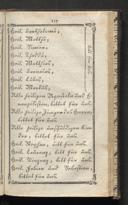 Heil. Bartholomä,
Heil. Mathäe,
Heil. Simon,
Heil. Thadäe,
Heil. Mathias,
Heil. Barnaba,
Heil. Luka,
Heil. Marke,
Alle heiligen Aposteln und E-
vangelisten, bittet für uns.
Alle heilige Jünger des Herrn,
bittet für uns.
Alle heilige unschuldigen Kin-
der, bittet für uns.
Heil. Stephan, bitt für uns.
Heil. Laurenz, bitt für uns.
Heil. Vinzenz, bitt für uns.
Heil. Fabian und Sebastian,
bittet für uns.